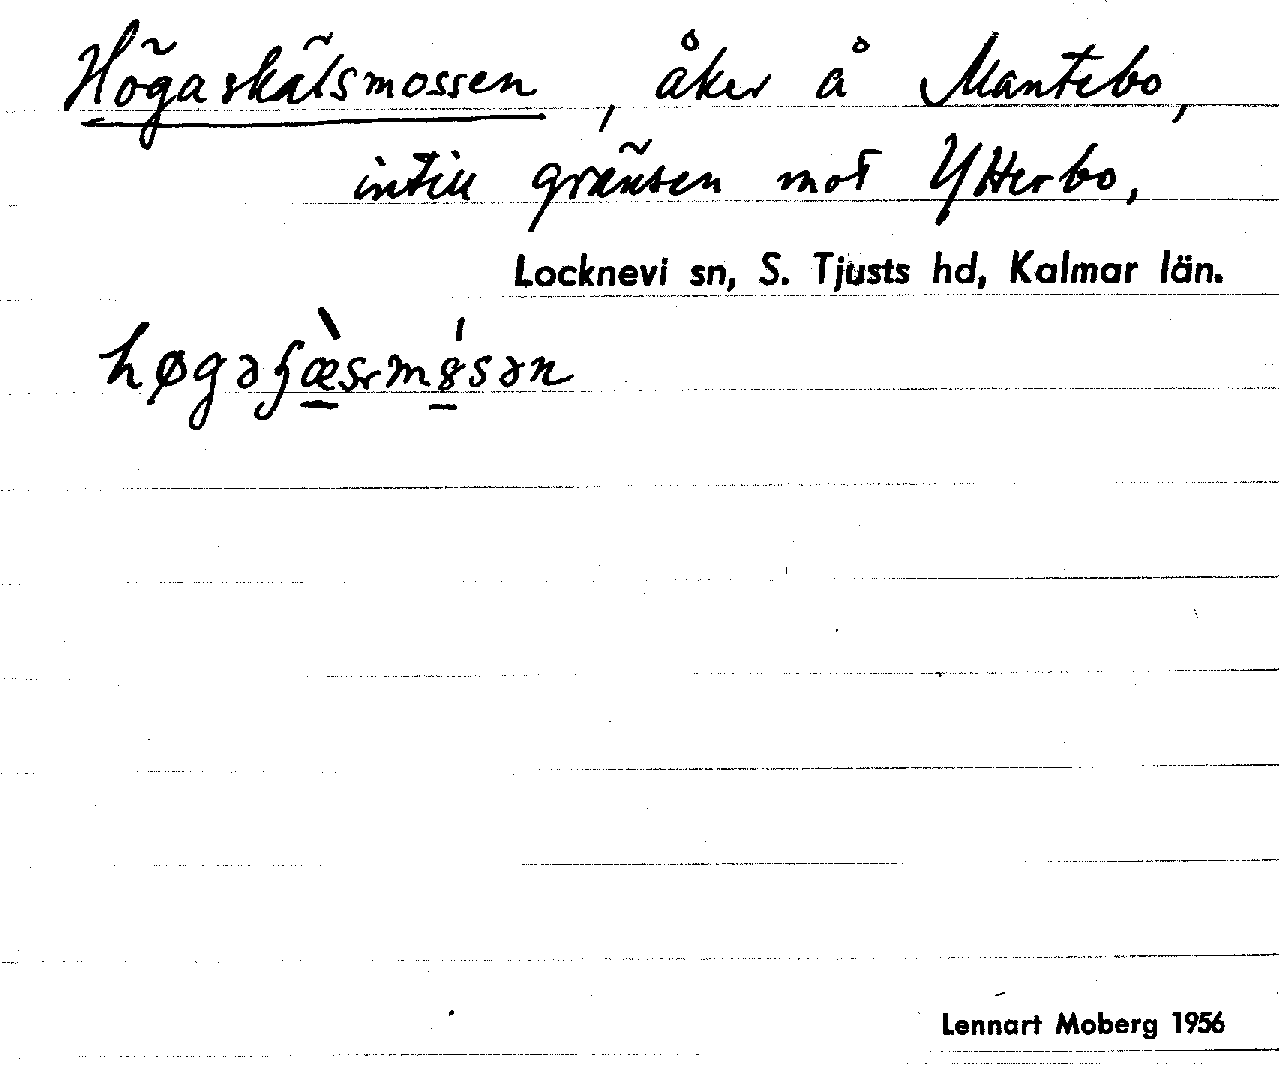 Högaskälsmossen, åker å Mantebo,
intill gränsen mot Ytterbo,
Locknevi sn, S. Tjusts hd, Kalmar län.
Lennart Moberg 1956